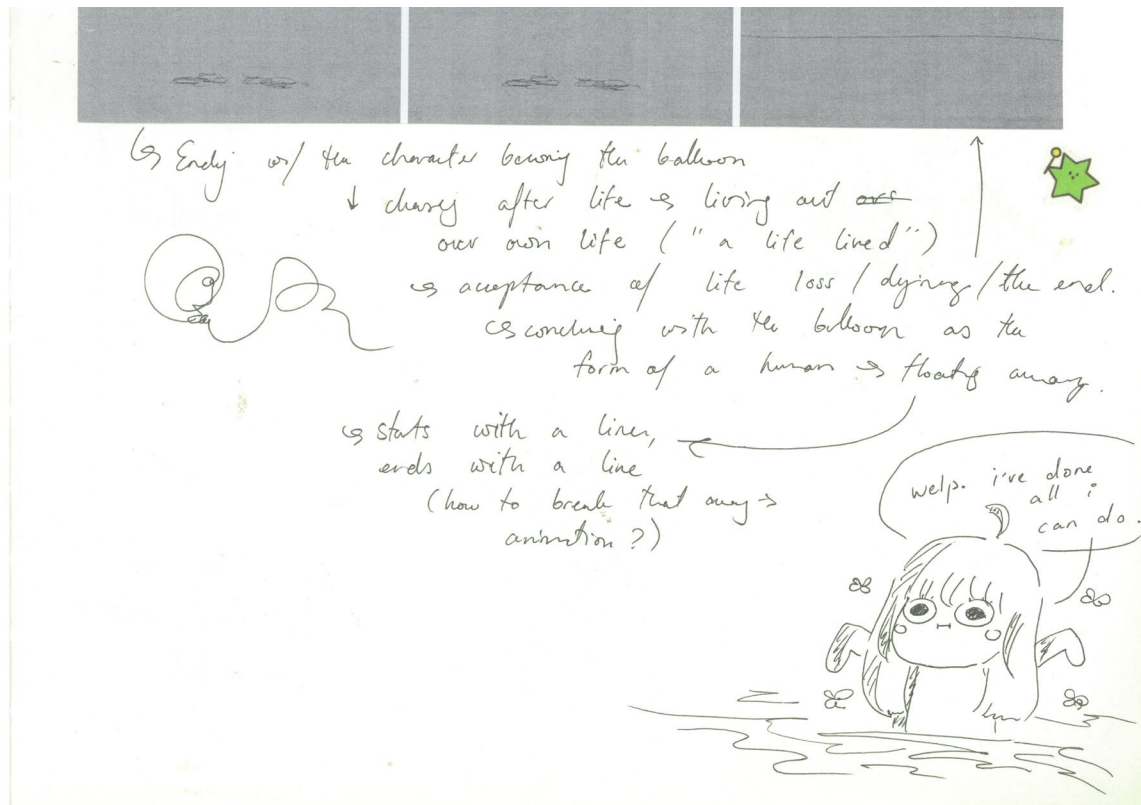 ↳ Endig w/ the character becoming the balloon
↓ chasing after life ↳ living out our
our own life ("a life lived")
↳ acceptance of life loss / dying / the end.
↳ concluding with the balloon as the
form of a human ↳ floating away.
↳ starts with a line,
ends with a line
(how to break that away →
animation?)
welp. i've done
all i
can do.